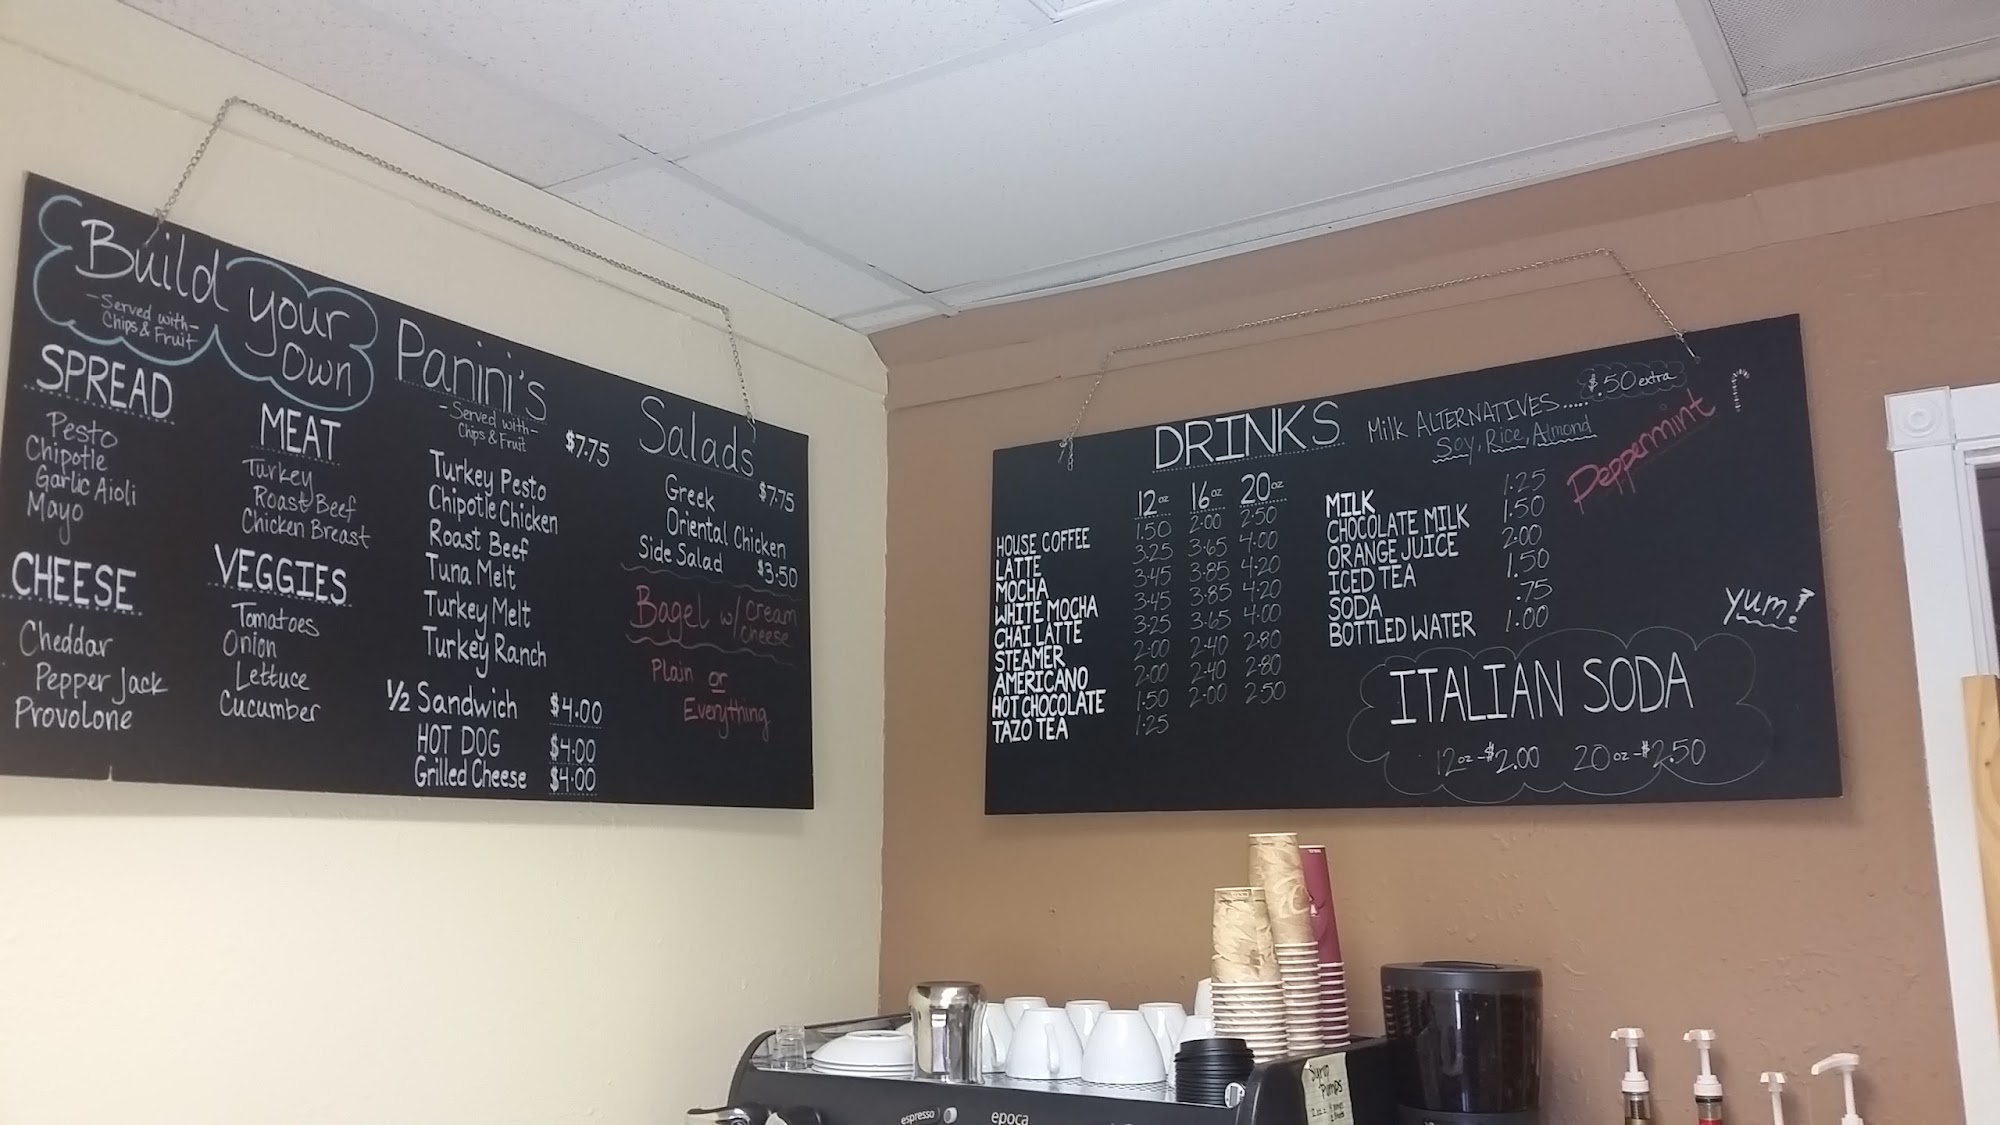 Build your
Own
-Served with-
Chips & Fruit
SPREAD
Pesto
Chipotle
Garlic Aioli
Mayo
CHEESE
Cheddar
Pepper Jack
Provolone
MEAT
Turkey
Roast Beef
Chicken Breast
VEGGIES
Tomatoes
Onion
Lettuce
Cucumber
Panini's
-Served with-
Chips & Fruit
$7.75
Turkey Pesto
Chipotle Chicken
Roast Beef
Tuna Melt
Turkey Melt
Turkey Ranch
½ Sandwich $4.00
HOT DOG $4.00
Grilled Cheese $4.00
Salads
Greek $7.75
Oriental Chicken
Side Salad $3.50
Bagel w/ cream
cheese
Plain or
Everything
DRINKS
Milk ALTERNATIVES..... $.50 extra
Soy, Rice, Almond
Peppermint
12oz 16oz 20oz
HOUSE COFFEE 1.50 2.00 2.50
LATTE 3.25 3.65 4.00
MOCHA 3.45 3.85 4.20
WHITE MOCHA 3.45 3.85 4.20
CHAI LATTE 3.25 3.65 4.00
STEAMER 2.00 2.40 2.80
AMERICANO 2.00 2.40 2.80
HOT CHOCOLATE 1.50 2.00 2.50
TAZO TEA 1.25
MILK 1.25
CHOCOLATE MILK 1.50
ORANGE JUICE 2.00
ICED TEA 1.50
SODA .75
BOTTLED WATER 1.00
yum!
ITALIAN SODA
12oz-$2.00 20oz-$2.50
espresso
epoca
Syrup
Pumps